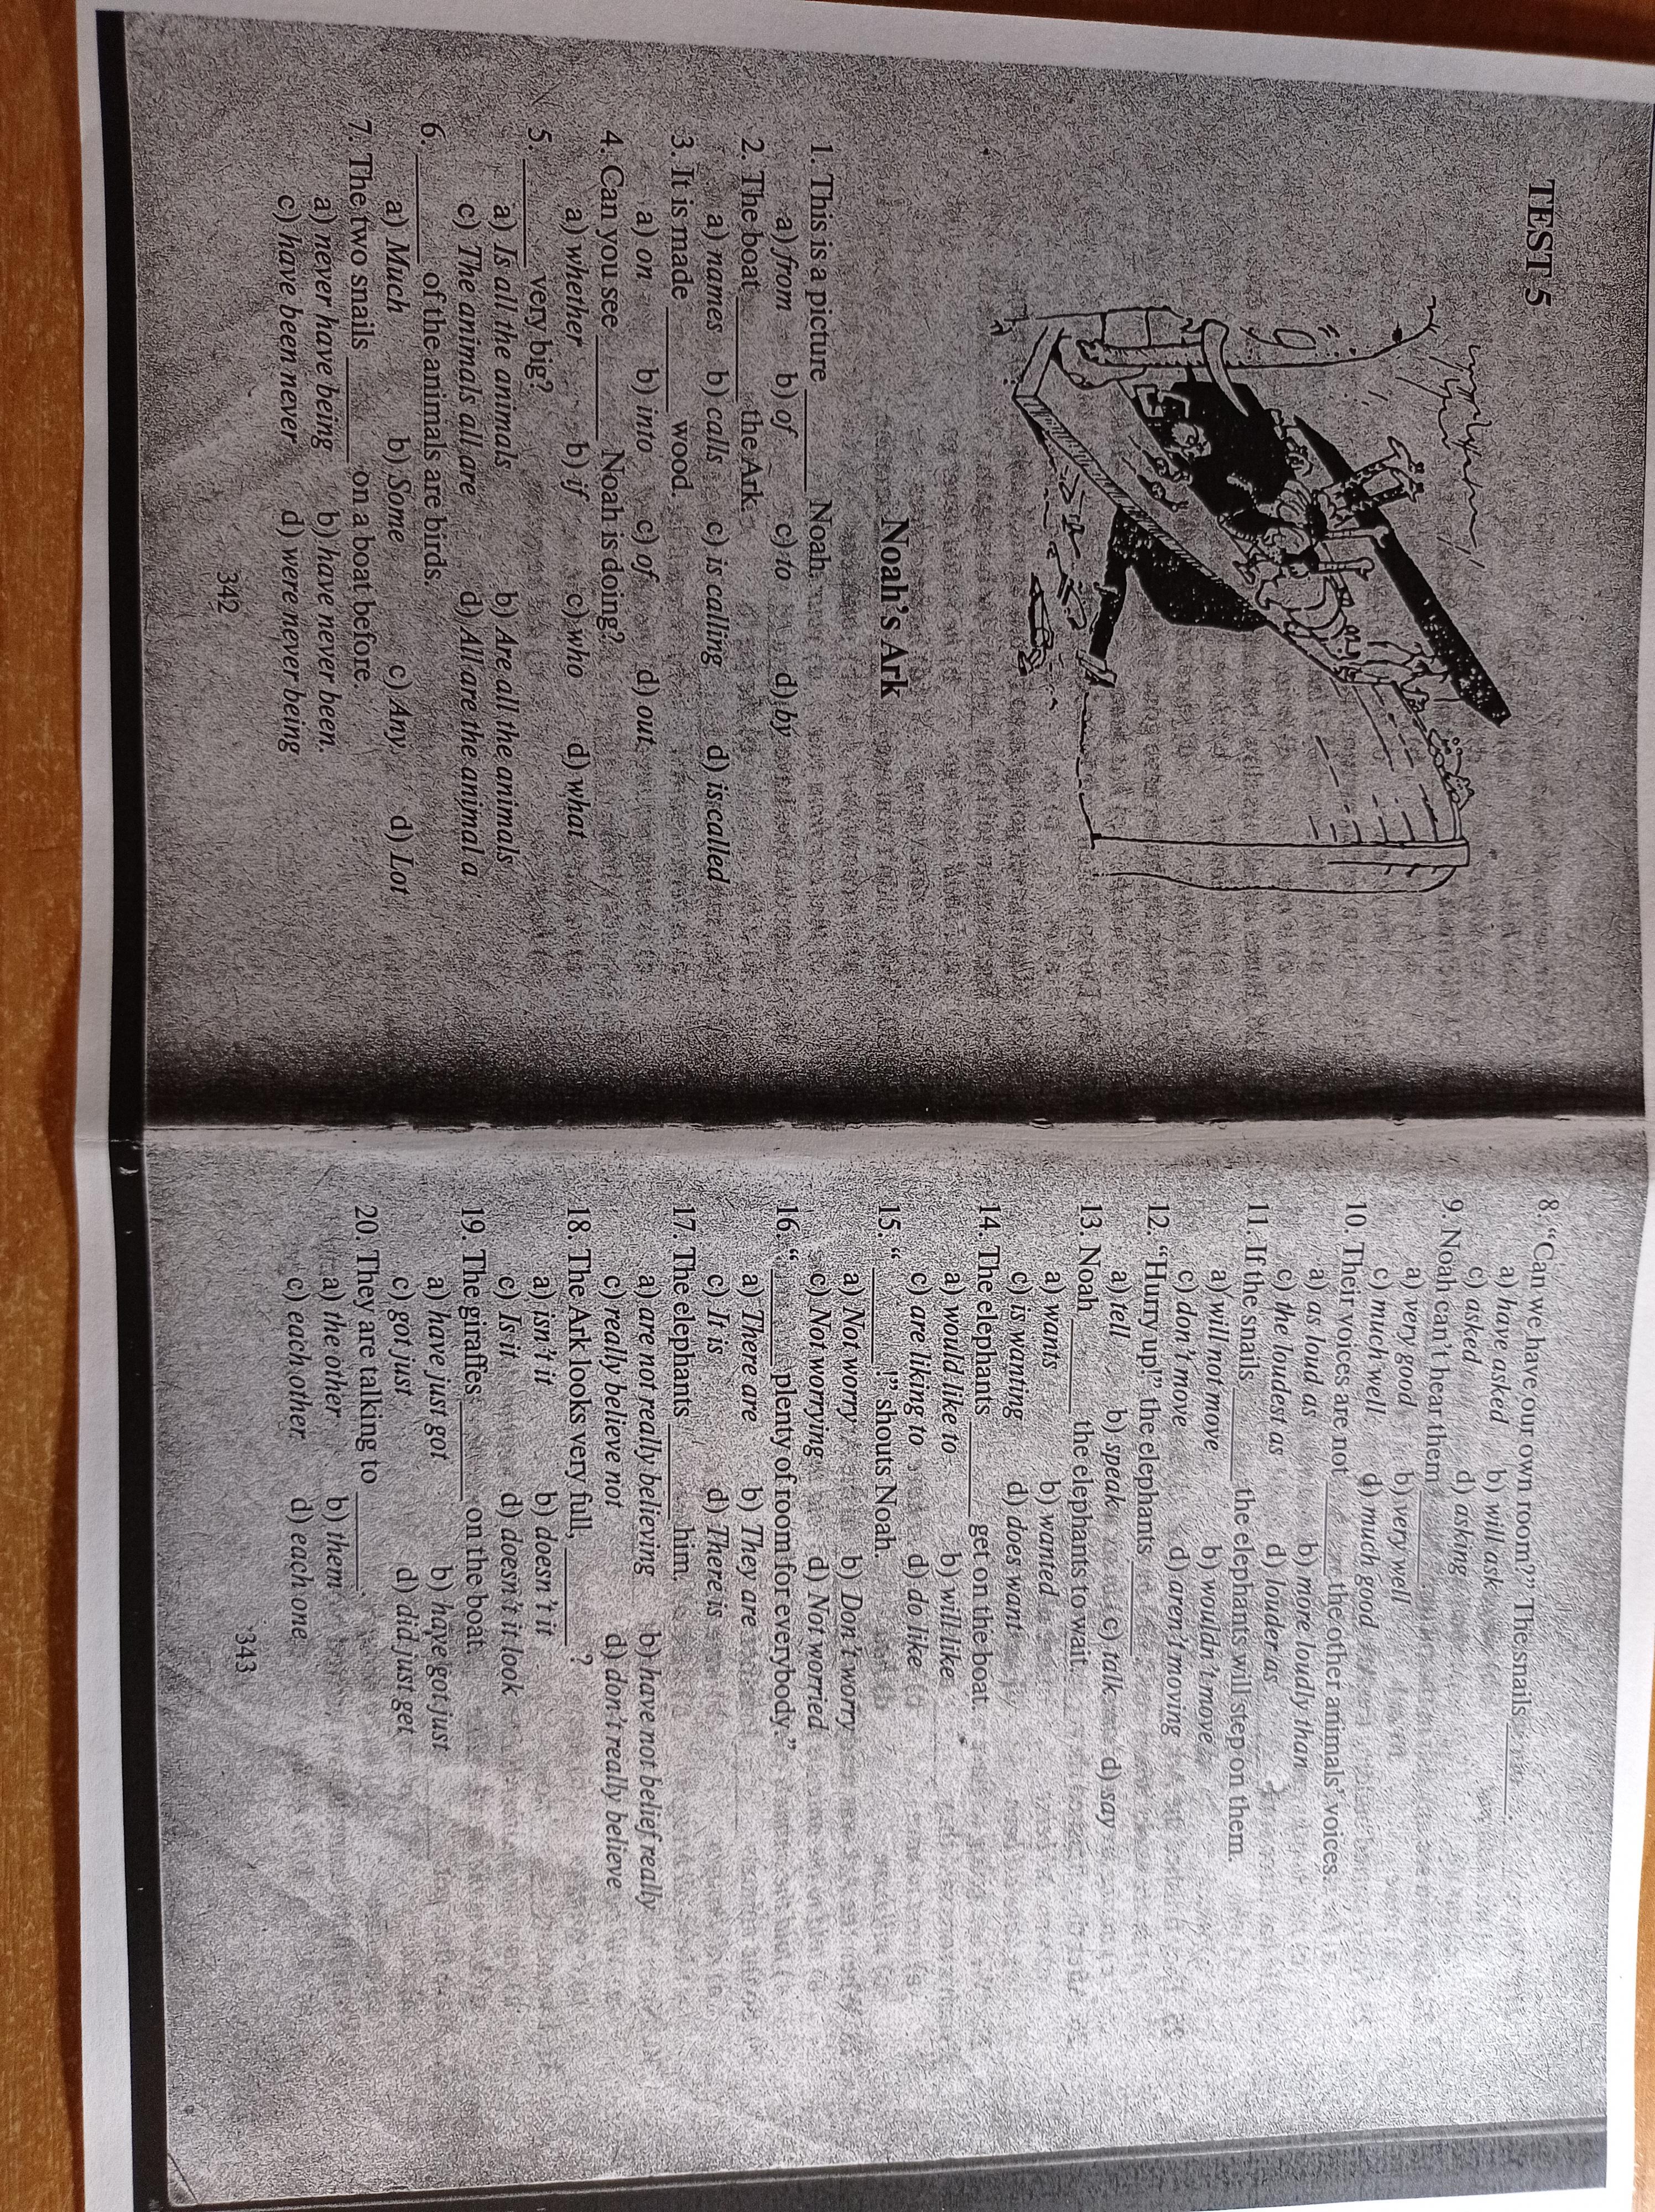 TEST 5
Noah's Ark
1. This is a picture ______ Noah.
a) from b) of c) to d) by
2. The boat ______ the Ark.
a) names b) calls c) is calling d) is called
3. It is made ______ wood.
a) on b) into c) of d) out
4. Can you see ______ Noah is doing?
a) whether b) if c) who d) what
5. ______ very big?
a) Is all the animals b) Are all the animals
c) The animals all are d) All are the animal a
6. ______ of the animals are birds.
a) Much b) Some c) Any d) Lot
7. The two snails ______ on a boat before.
a) never have being b) have never been.
c) have been never d) were never being
342
8. “Can we have our own room?” The snails ______.
a) have asked b) will ask
c) asked d) asking
9. Noah can't hear them ______
a) very good b) very well
c) much well d) much good
10. Their voices are not ______ the other animals' voices.
a) as loud as b) more loudly than
c) the loudest as d) louder as
11. If the snails ______ the elephants will step on them.
a) will not move b) wouldn't move
c) don't move d) aren't moving
12. “Hurry up!” the elephants ______.
a) tell b) speak c) talk d) say
13. Noah ______ the elephants to wait.
a) wants b) wanted
c) is wanting d) does want
14. The elephants ______ get on the boat.
a) would like to b) will like
c) are liking to d) do like
15. “______!” shouts Noah.
a) Not worry b) Don't worry
c) Not worrying d) Not worried
16. “______ plenty of room for everybody.”
a) There are b) They are
c) It is d) There is
17. The elephants ______ him.
a) are not really believing b) have not belief really
c) really believe not d) don't really believe
18. The Ark looks very full, ______?
a) isn't it b) doesn't it
c) Is it d) doesn't it look
19. The giraffes ______ on the boat.
a) have just got b) have got just
c) got just d) did just get
20. They are talking to ______.
a) the other b) them
c) each other d) each one
343